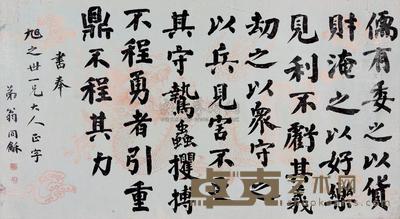 儒有委之以貨
財淹之以好樂
見利不虧其義
劫之以眾守之
以兵見害不更
其守鷙蟲攫搏
不程勇者引重
鼎不程其力
書奉
旭之世一兄大人正字
弟翁同龢